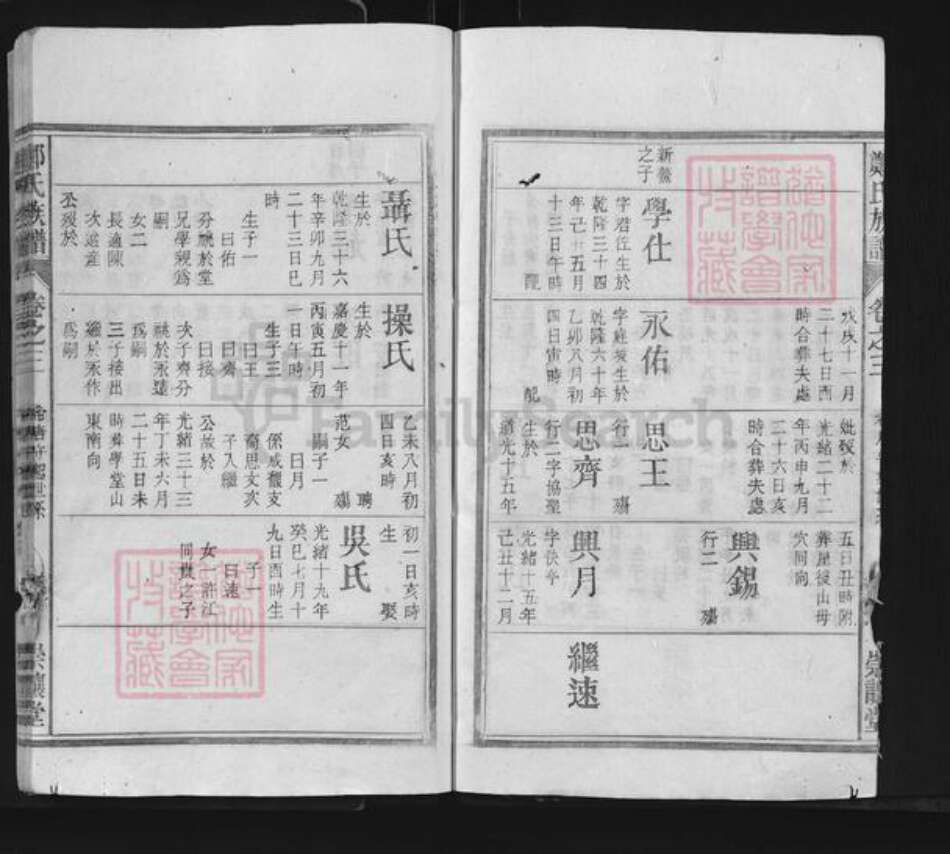 鄭氏族譜
卷之三
崇讓堂
戊戌十一月
二十七日酉
時合葬夫處
妣歿於
光緒二十二
年丙申九月
二十六日亥
時合葬夫處
五日丑時附
葬屋後山母
穴同向
興錫
行二
殤
新鰲
之子
學仕
字君佐生於
乾隆三十四
年己丑五月
十三日午時
配
永佑
乾隆六十年
乙卯八月初
四日寅時
配
思王
行一
殤
思齊
行二字協聖
生於
道光十五年
興月
光緒十五年
己丑十二月
繼速
聶氏
生於
乾隆三十六
年辛卯九月
二十三日巳
時
生子一
曰佑
兄學親爲
嗣
女二
長適陳
次適產
公歿於
操氏
生於
嘉慶十一年
丙寅五月初
一日午時
生子三
曰王
曰齊
曰接
次子齊分
祧於永遠
爲嗣
三子接出
繼於永作
爲嗣
乙未八月初
四日亥時
聘
范女
殤
嗣子一
曰月
係咸棚支
裔思文次
子入繼
公故於
光緒三十三
年丁未六月
二十五日未
時葬學堂山
東南向
初一日亥時
生
娶
吳氏
光緒十九年
癸巳七月十
九日酉時生
子一
曰速
女
許江
同賢之子
鄭氏族譜
卷之三
崇讓堂
FamilySearch